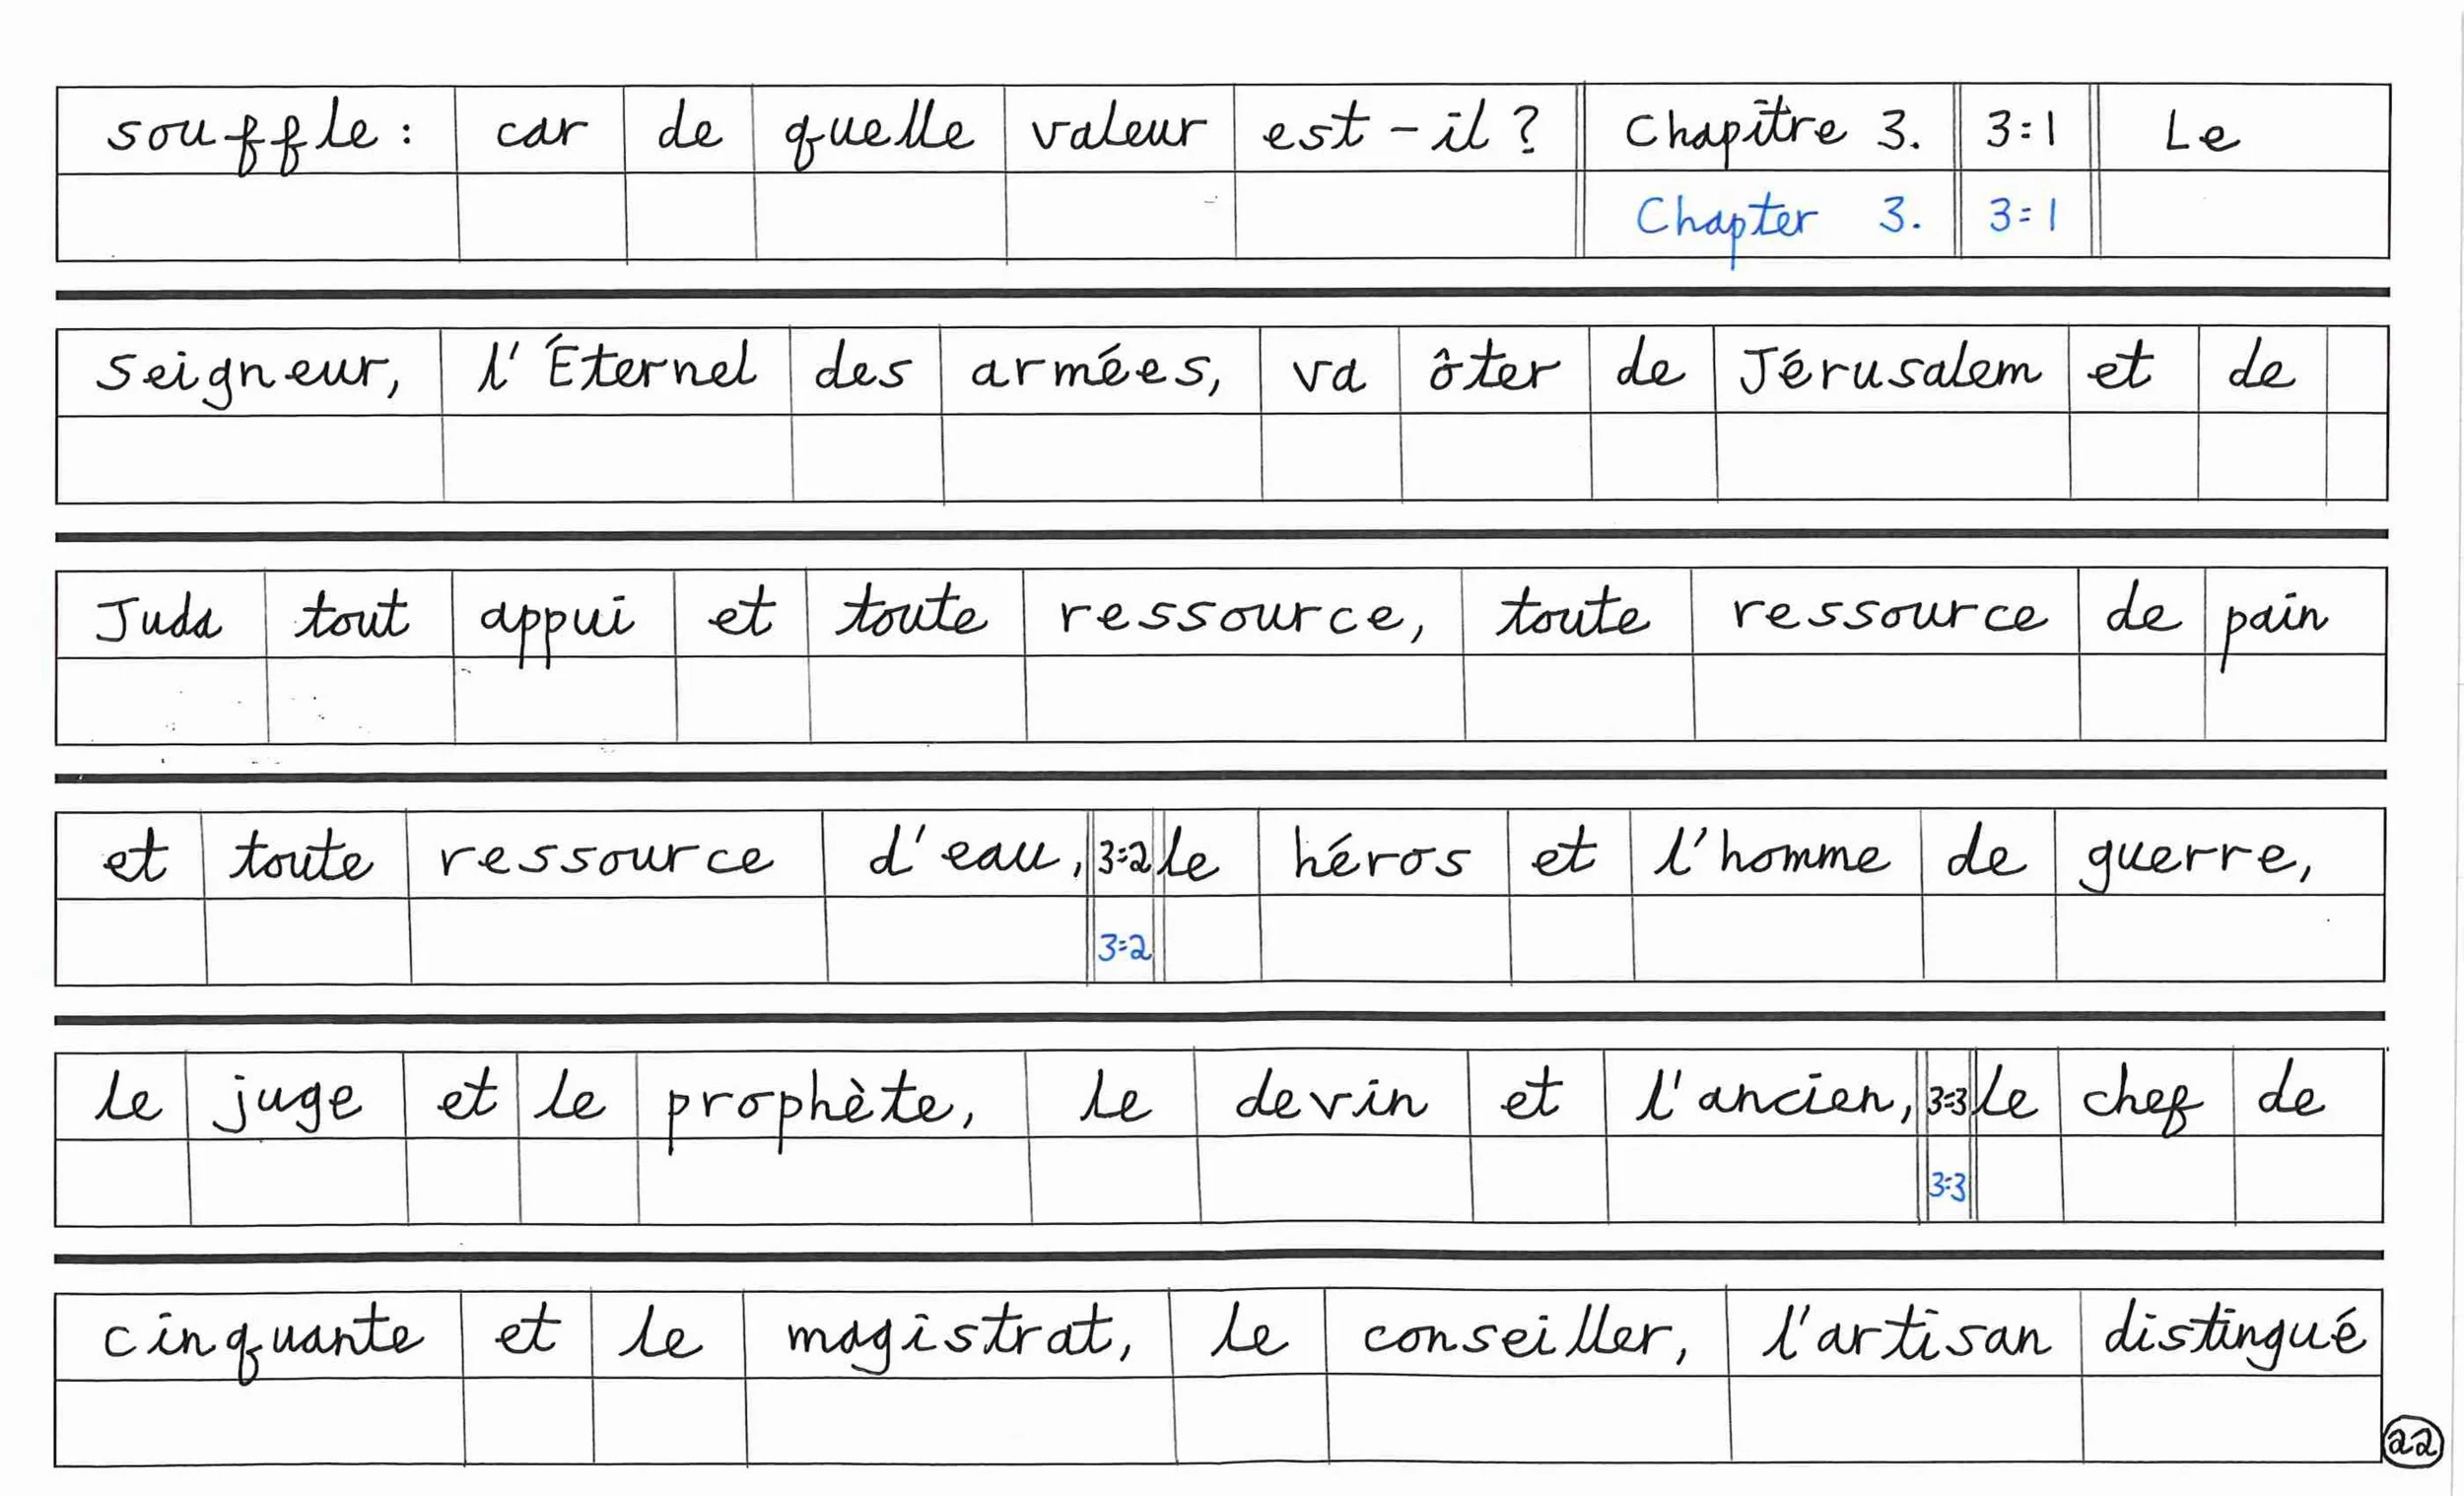 souffle: car de quelle valeur est-il? Chapître 3. 3:1 Le
Chapter 3. 3:1
Seigneur, l'Éternel des armées, va ôter de Jérusalem et de
Juda tout appui et toute ressource, toute ressource de pain
et toute ressource d'eau, 3:2 le héros et l'homme de guerre,
3:2
le juge et le prophète, le devin et l'ancien, 3:3 le chef de
3:3
cinquante et le magistrat, le conseiller, l'artisan distingué
22